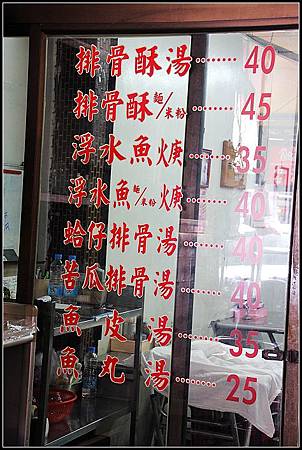 排骨酥湯……40
排骨酥麵/米粉……45
浮水魚焿……35
浮水魚麵/米粉焿……40
蛤仔排骨湯……40
苦瓜排骨湯……40
魚皮湯……35
魚丸湯……25